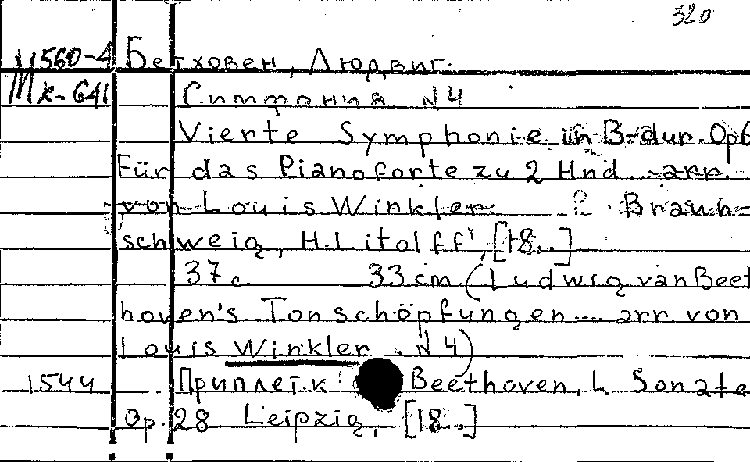 320
11560-4 Бетховен, Людвиг.
Мк-641 Симфония N 4
Vierte Symphonie in B-dur. Op6
Für das Pianoforte zu 2 Hnd. arr.
von Louis Winkler Braun=
schweig, H. Litolff', [18..]
37с 33 cm (Ludwig van Beet
hoven's Tonschöpfungen... arr von
Louis Winkler. N 4)
1544 Приплет. к: Beethoven, L. Sonate
Op. 28 Leipzig, [18..]